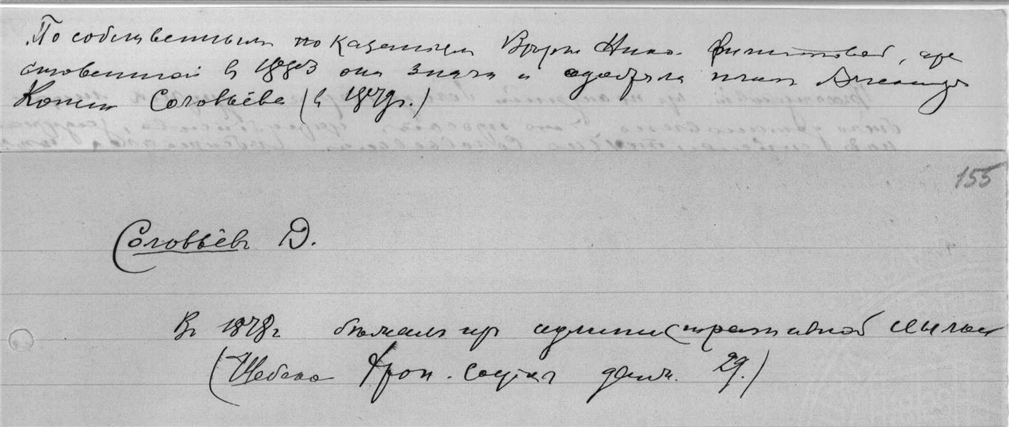 По собственным показаниям Веры Ник. Фигнер, аре
стованной в 1883 она знала и одобряла план Александра
Конст. Соловьёва (в 1879г.)
155
Соловьёв Д.
В 1878г бежал из административной ссылки
(Шебеко Хрон. социал движ. 29.)